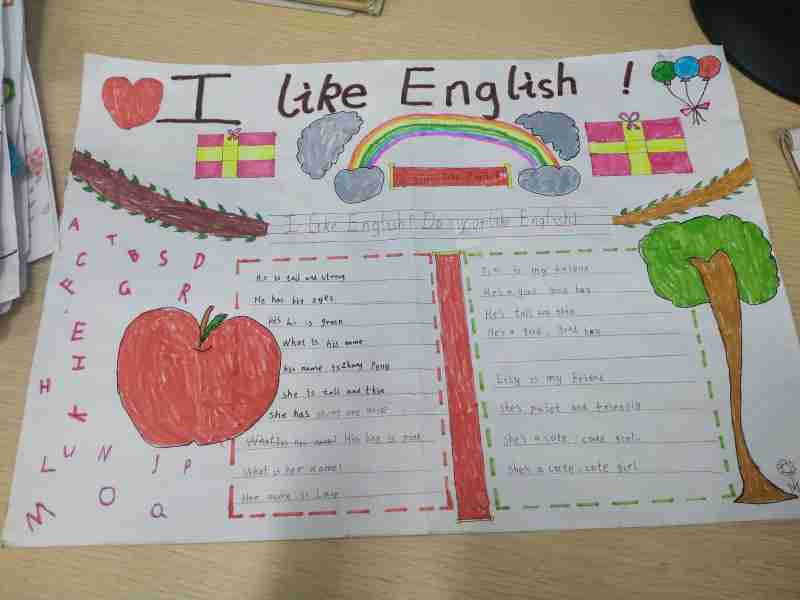 I like English !
I like English! Do you like English!
A
T
C
B
S
D
G
R
E
I
H
K
L
U
N
J
P
M
O
Q
He is tall and strong
He has big eyes
his is green
What is his name
his name is Zhang Peng
she is tall and thin
she has
What is her name! His is
What is her name!
Her name is
is my friend
He's a good good boy
He's tall and thin
He's a good, good boy
is my friend
she's and friendly
she's a cute, cute girl.
She's a cute, cute girl